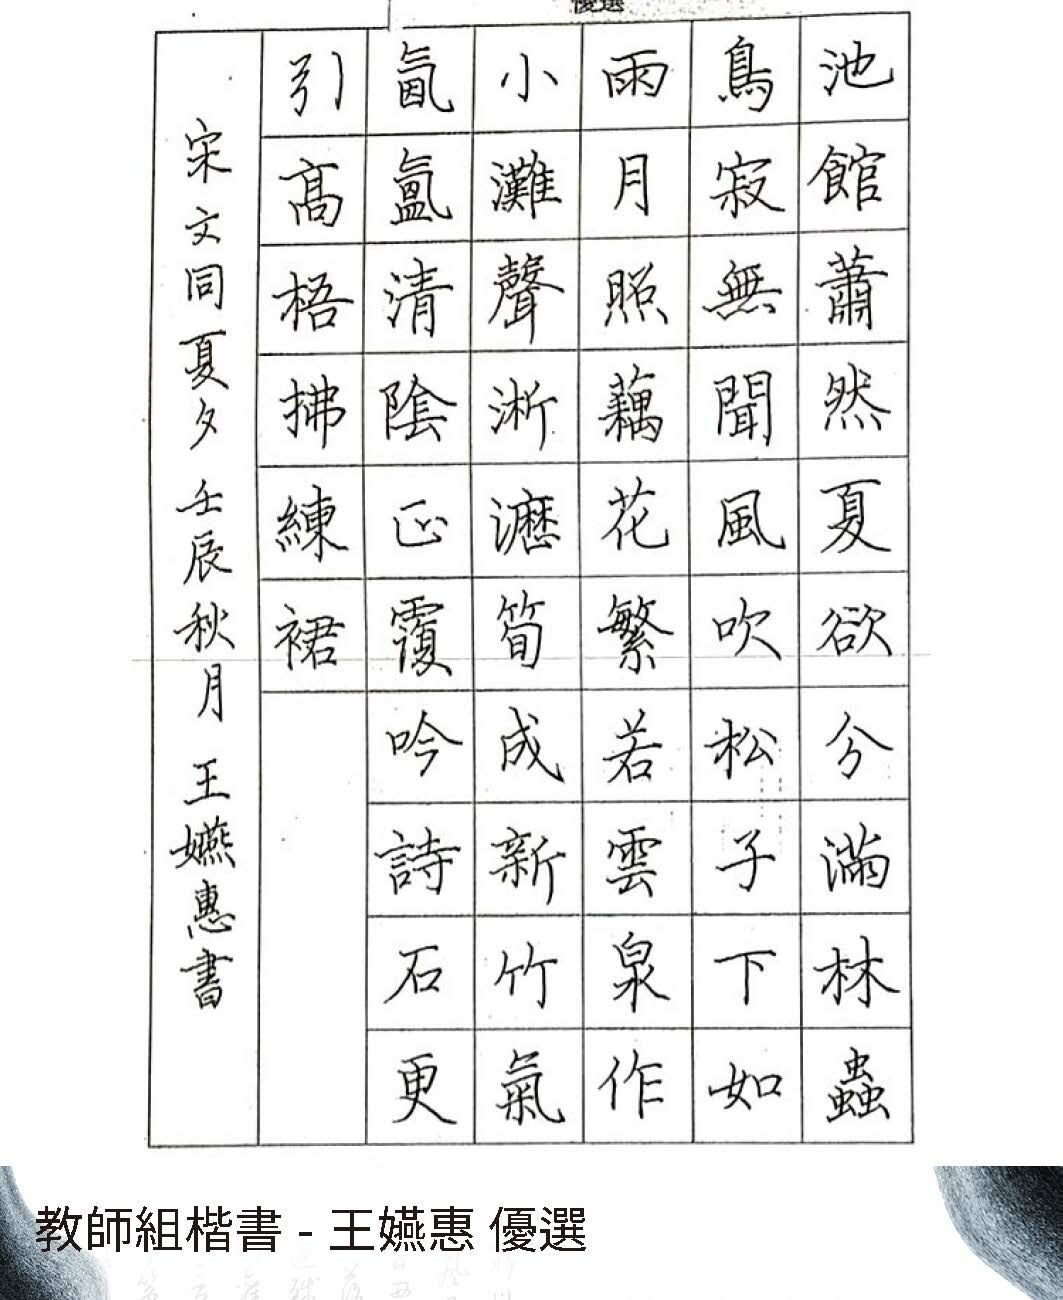 優選
池館蕭然夏欲分滿林蟲
鳥寂無聞風吹松子下如
雨月照藕花繁若雲泉作
小灘聲淅瀝筍成新竹氣
氤氳清陰正覆吟詩石更
引高梧拂練裙
宋文同夏夕 壬辰秋月 王嬿惠書
教師組楷書 - 王嬿惠 優選